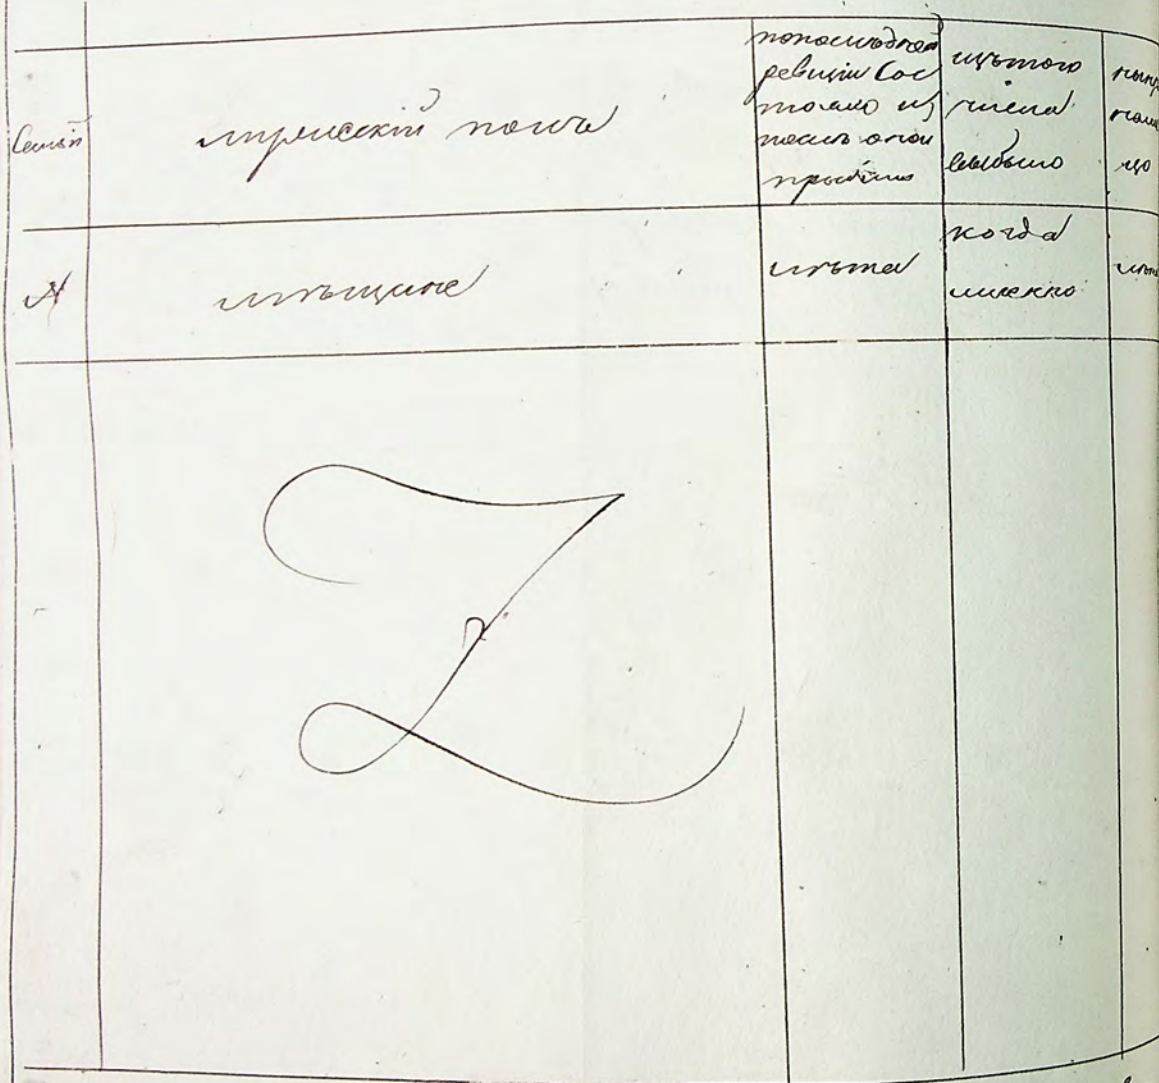 Семьи
мужескій полъ
попоследней
ревизіи Сос
тояло из
после оной
прибыло
изътого
числа
выбыло
№
мещане
лѣта
когда
именно